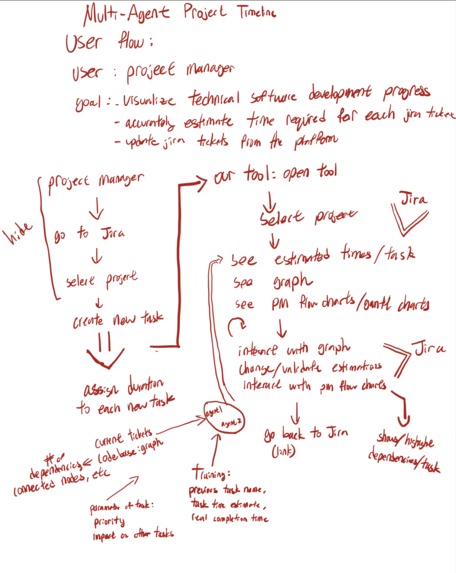 Multi-Agent Project Timeline
User flow:
user: project manager
goal: - visualize technical software development progress
- accurately estimate time required for each jira ticket
- update jira tickets from the platform
hide
project manager
go to Jira
select project
create new task
assign duration
to each new task
our tool: open tool
select project
Jira
see estimated times/task
see graph
see PM flow charts/gantt charts
interact with graph
change/validate estimations
interact with pm flow charts
Jira
go back to Jira
(link)
show/highlight
dependencies/task
agent 1
agent 2
current tickets
codebase:graph
# of
dependencies
connected nodes, etc
parameter of task:
priority
impact on other tasks
Training:
previous task name,
task time estimate,
real completion time